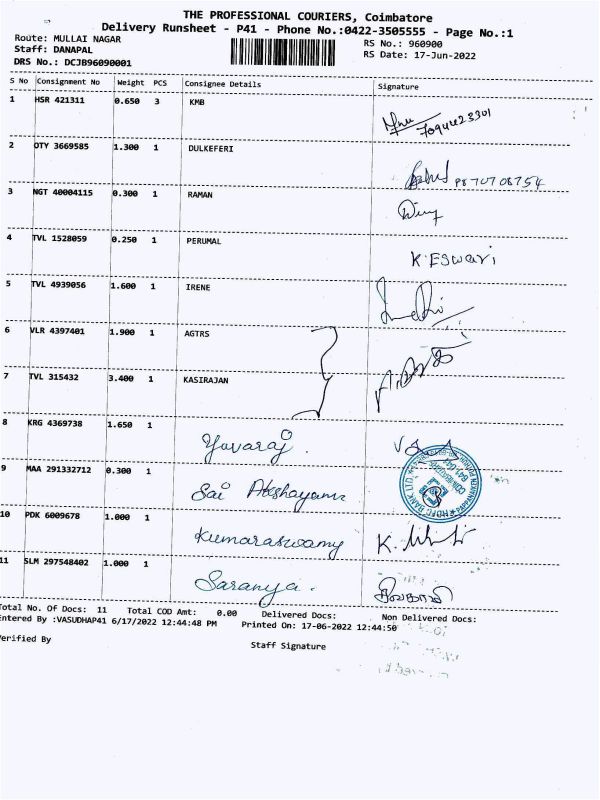 THE PROFESSIONAL COURIERS, Coimbatore
Delivery Runsheet - P41 - Phone No.:0422-3505555 - Page No.:1
Route: MULLAI NAGAR
Staff: DANAPAL
DRS No.: DCJB96090001
RS No.: 960900
RS Date: 17-Jun-2022
S No Consignment No Weight PCS Consignee Details Signature
1 HSR 421311 0.650 3 KMB
7094423301
2 OTY 3669585 1.300 1 DULKEFERI
9870708754
3 NGT 40004115 0.300 1 RAMAN
4 TVL 1528059 0.250 1 PERUMAL
K ESwari
5 TVL 4939056 1.600 1 IRENE
6 VLR 4397401 1.900 1 AGTRS
7 TVL 315432 3.400 1 KASIRAJAN
8 KRG 4369738 1.650 1 Yuvaraj.
9 MAA 291332712 0.300 1 Sai Akshayam
HDFC BANK LTD.
10 PDK 6009678 1.000 1 Kumaraswamy
11 SLM 297548402 1.000 1 Saranya.
Total No. Of Docs: 11 Total COD Amt: 0.00 Delivered Docs: Non Delivered Docs:
Entered By :VASUDHAP41 6/17/2022 12:44:48 PM Printed On: 17-06-2022 12:44:50
Verified By Staff Signature